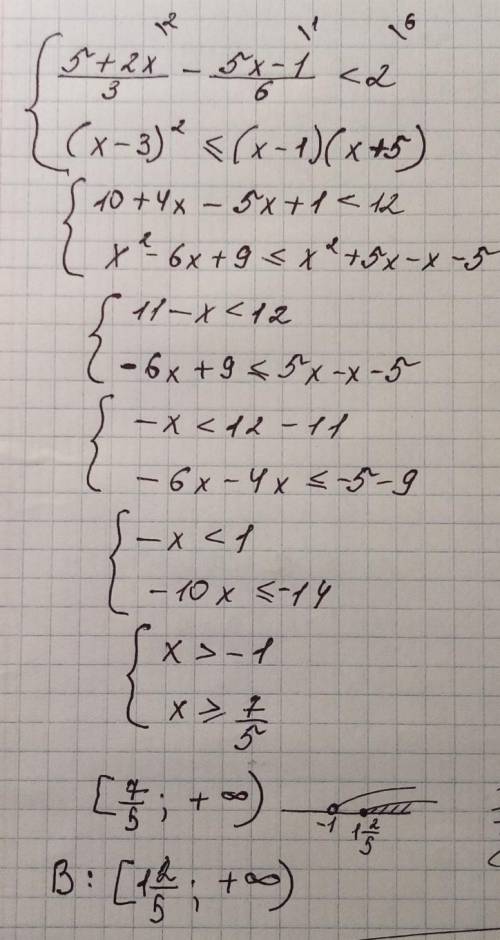 \2 \1 \6
{ (5+2x)/3 - (5x-1)/6 < 2
(x-3)² ≤ (x-1)(x+5)
{ 10+4x-5x+1<12
x²-6x+9 ≤ x²+5x-x-5
{ 11-x<12
-6x+9 ≤ 5x-x-5
{ -x<12-11
-6x-4x ≤ -5-9
{ -x<1
-10x ≤ -14
{ x>-1
x ≥ 7/5
[7/5; +∞) -1 1 2/5
В: [1 2/5; +∞)